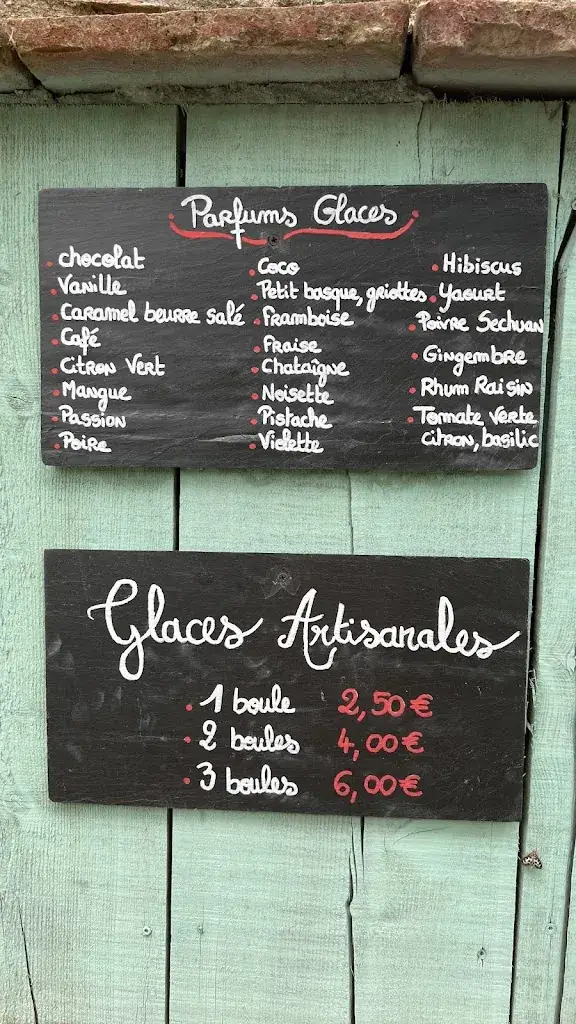 Parfums Glaces
chocolat
Vanille
Caramel beurre salé
Café
Citron Vert
Mangue
Passion
Poire
Coco
Petit basque, griottes
Framboise
Fraise
Chataîgne
Noisette
Pistache
Violette
Hibiscus
Yaourt
Poivre Sechuan
Gingembre
Rhum Raisin
Tomate Verte
citron, basilic
Glaces Artisanales
1 boule 2,50€
2 boules 4,00€
3 boules 6,00€